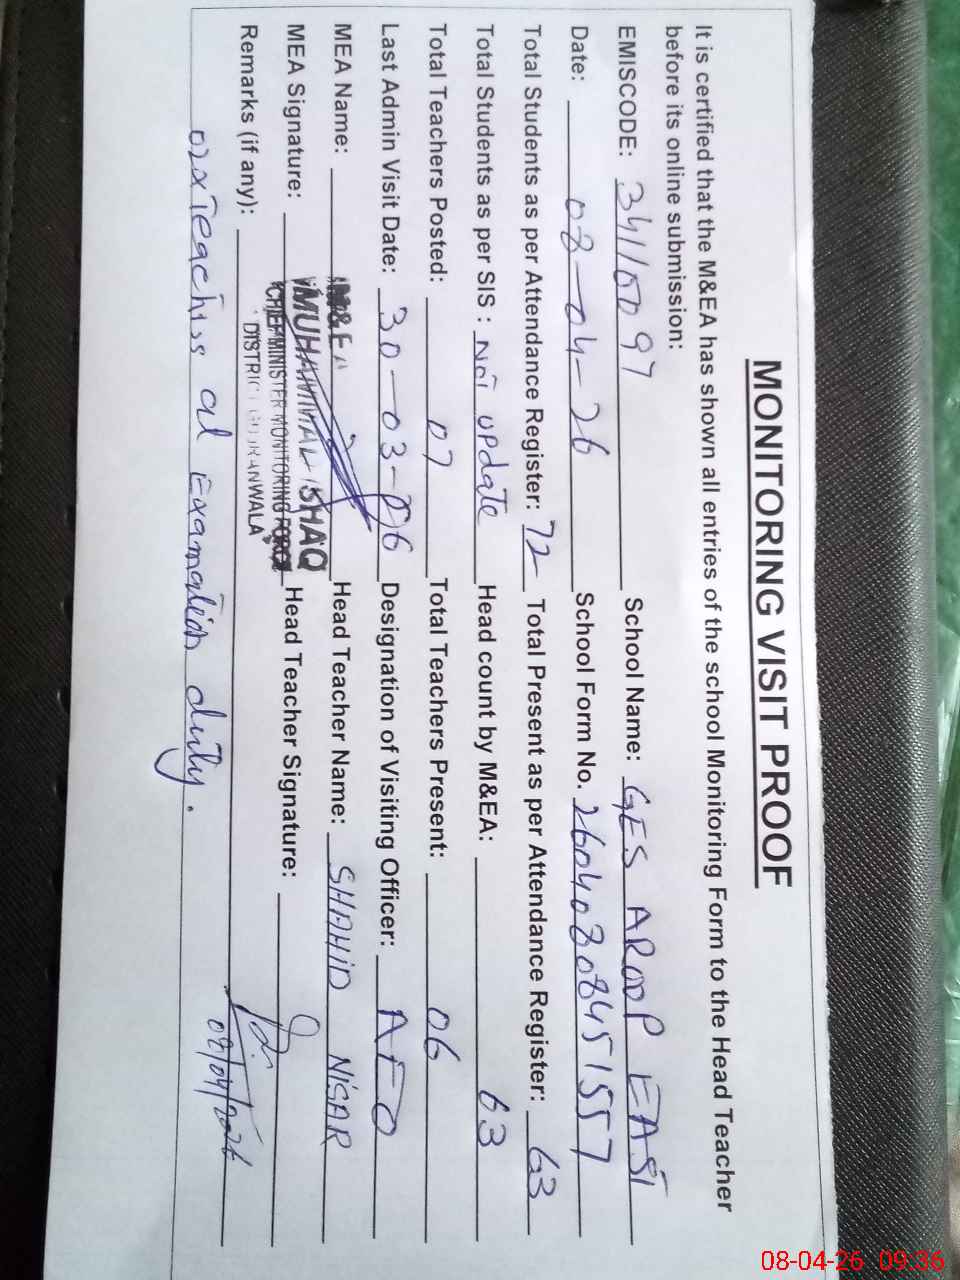 MONITORING VISIT PROOF
It is certified that the M&EA has shown all entries of the school Monitoring Form to the Head Teacher
before its online submission:
EMISCODE: 34110097 School Name: GES AROOP EAST
Date: 08-04-26 School Form No. 26040808451557
Total Students as per Attendance Register: 72 Total Present as per Attendance Register: 63
Total Students as per SIS: Not UPdate Head count by M&EA: 63
Total Teachers Posted: 07 Total Teachers Present: 06
Last Admin Visit Date: 30-03-26 Designation of Visiting Officer: AEO
MEA Name: M&EA Head Teacher Name: SHAHID NISAR
MEA Signature: MUHAMMAD ISHAQ Head Teacher Signature:
CHIEF MINISTER MONITORING FORCE
DISTRICT GUJRANWALA
Remarks (if any): 08/04/2026
02xTeachers at Examation duty.
08-04-26 09:36